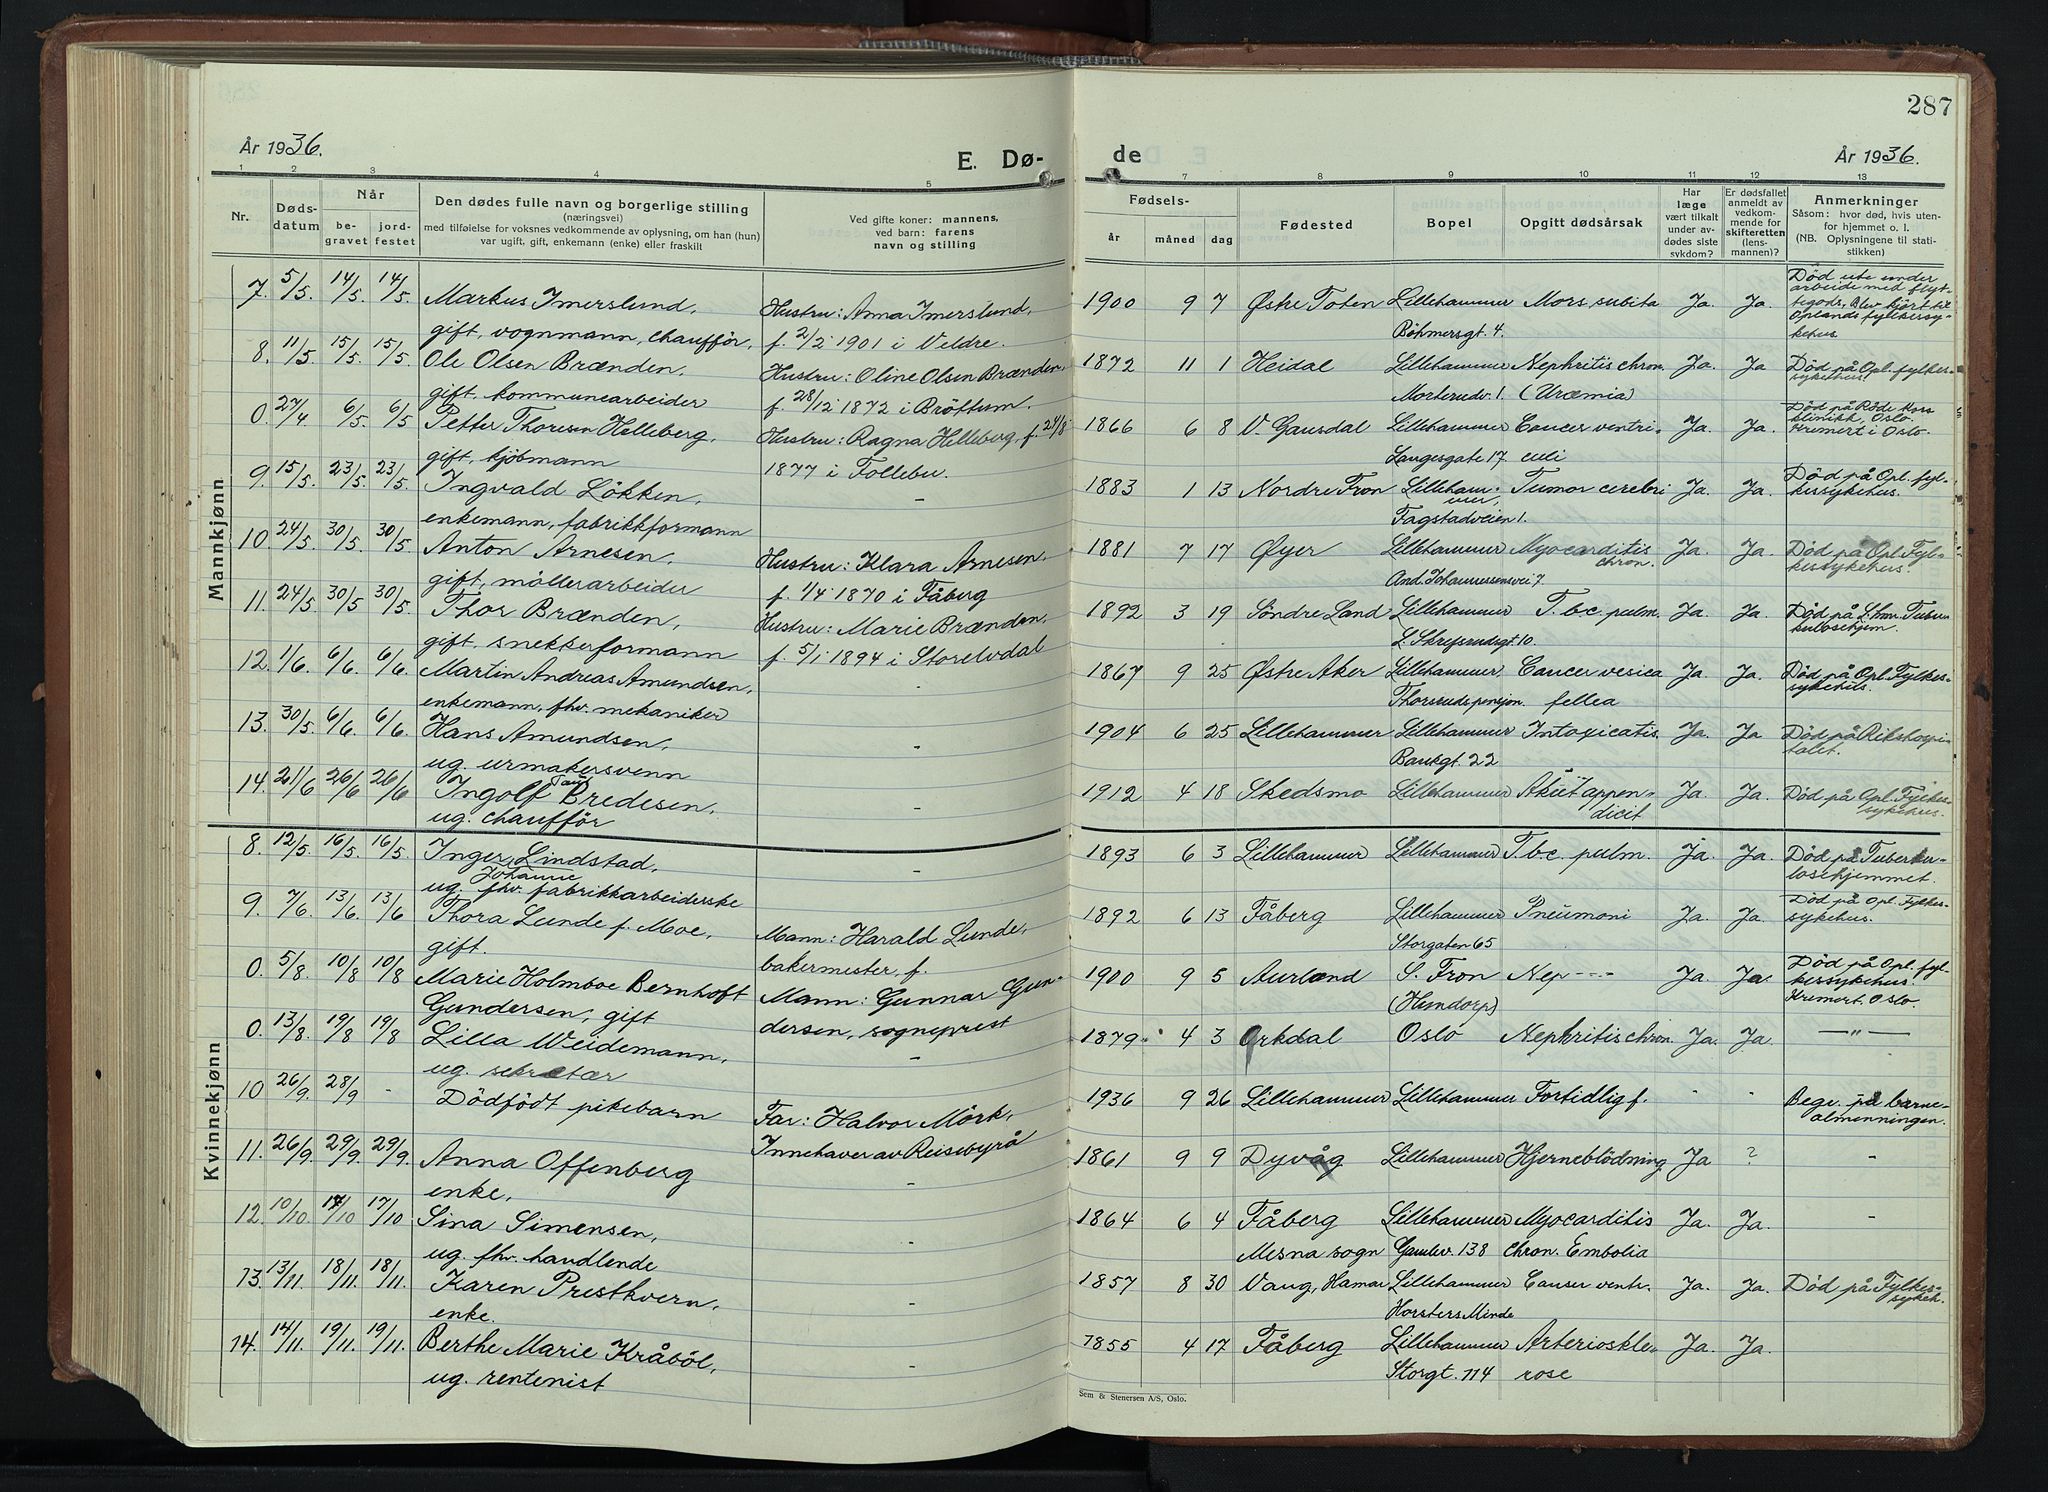 287
År 1936.
E. Dø-
de
År 1936.
1 2 3 4 5 7 8 9 10 11 12 13
Nr.
Døds-
datum
Når
be-
gravet
jord-
festet
Den dødes fulle navn og borgerlige stilling
(næringsvei)
med tilføielse for voksnes vedkommende av oplysning, om han (hun)
var ugift, gift, enkemann (enke) eller fraskilt
Ved gifte koner: mannens,
ved barn: farens
navn og stilling
Fødsels-
år måned dag
Fødested
Bopel
Opgitt dødsårsak
Har
læge
vært tilkalt
under av-
dødes siste
sykdom?
Er dødsfallet
anmeldt av
vedkom-
mende for
skifteretten
(lens-
mannen)?
Anmerkninger
Såsom: hvor død, hvis uten-
for hjemmet o. l.
(NB. Oplysningene til stati-
stikken)
Mannkjønn
7. 5/5. 14/5. 14/5. Markus Imerslund, Hustru: Anna Imerslund, 1900 9 7 Østre Toten Lillehammer Mors subita Ja. Ja. Død ute under
arbeide med flyt-
tegods, Blev kjørt til
Oplands fylkessy-
kehus
gift, vognmann, chauffør. f. 2/2 1901 i Veldre. Böhmersgt. 4.
8. 11/5. 15/5. 15/5. Ole Olsen Brænden, Hustru: Oline Olsen Brænden, 1872 11 1 Heidal Lillehammer Nephritis chron. Ja. Ja Død på Opl. fylkes-
sykehus.
gift, kommunearbeider f. 28/12 1872 i Brøttum. 1. (Uræmia)
0. 27/4 6/5. 6/5 Petter Thoresen Helleberg, Hustru: Ragna Helleberg, f. 21/8 1866 6 8 V. Gausdal Lillehammer Cancer ventri- Ja. Ja. Død på Røde Kors
klinikk, Oslo.
Kremert i Oslo.
gift, kjøbmann 1877 i Follebu. Langesgate 17 culi
9. 15/5. 23/5. 23/5. Ingvald Lökken, - 1883 1 13 Nordre Fron Lilleham-
mer, Tumor cerebri Ja. Ja. Død på Opl. fyl-
kessykehus.
enkemann, fabrikkformann Fagstadveien 1.
10. 24/5. 30/5. 30/5. Anton Arnesen, Hustru: Klara Arnesen, 1881 7 17 Øyer Lillehammer Myocarditis
chron. Ja. Ja. Død på Opl. Fyl-
kessykehus.
gift, møllerarbeider f. 1/4 1870 i Fåberg And. Johannessensvei 7.
11. 24/5 30/5 30/5. Thor Brænden, Hustru: Marie Brænden, 1892 3 19 Söndre Land Lillehammer T.b.c. pulm. Ja. Ja. Død på L.hmr. Tuber-
kulosehjem.
gift, snekkerformann f. 5/1 1894 i Storelvdal L. Skrefsrudsgt 10.
12. 1/6. 6/6. 6/6. Martin Andreas Amundsen, - 1867 9 25 Østre Aker Lillehammer, Cancer vesica Ja Ja. Død på Opl. Fylkes-
sykehus.
enkemann, fhv. mekaniker Thorsrudspensjon. fellea
13. 30/5. 6/6. 6/6. Hans Amundsen, - 1904 6 25 Lillehammer Lillehammer Intoxicatis. Ja. Ja Død på Rikshospi-
talet.
ug. urmakersvenn Bankgt. 22
14. 21/6 26/6 26/6 Ingolf Bredesen, 1912 4 18 Skedsmo Lillehammer Akut appen-
dicit Ja. Ja. Død på Opl. Fylkes-
sykehus.
ug. chauffør
Kvinnekjønn
8. 12/5. 16/5. 16/5. Inger Lindstad, - 1893 6 3 Lillehammer Lillehammer T.b.c. pulm. Ja. Ja. Død på Tuberku-
losehjemmet.
Johanne
ug. fhv. fabrikkarbeiderske
9. 7/6. 13/6. 13/6 Thora Lunde f. Moe, Mann: Harald Lunde, 1892 6 13 Fåberg Lillehammer Pneumoni Ja. Ja. Død på Opl. Fylkes-
sykehus.
gift. bakermester, f. Storgaten 65
0 5/8. 10/8 10/8 Marie Holmboe Bernhoft Mann: Gunnar Gun- 1900 9 5 Aurland S. Fron Nep---- Ja. Ja. Død på Opl. fyl-
kessykehus.
Kremert, Oslo.
Gundersen, gift dersen, sogneprest (Hundorp)
0 13/8. 19/8 19/8 Lilla Weidemann, - 1879. 4 3 Orkdal Oslo Nephritis chron. Ja. Ja. —„—
ug. sekretær
10 26/9. 28/9 - Dödfödt pikebarn Far: Halvor Mörk, 1936 9 26 Lillehammer Lillehammer Fortidlig f. - - Begr. på barne-
almenningen.
11. 26/9. 29/9. 29/9. Anna Offenberg Innehaver av Reisebyrå 1861 9 9 Dyvåg Lillehammer Hjerneblödning Ja ? -
enke, -
12. 10/10. 17/10 17/10 Sina Simensen, - 1864 6 4 Fåberg Lillehammer Myocarditis Ja. Ja. -
ug. fhv. handlende Mesna sogn Gamlev. 138 chron. Embolia
13. 13/11. 18/11. 18/11. Karen Prestkvern, - 1857 8 30 Vang, Hamar Lillehammer Canser ventr. Ja. Ja. Død på Fylkes-
sykeh.
enke. Horsters Minde
14. 14/11. 19/11. 19/11. Berthe Marie Kråböl, - 1855 4 17 Fåberg Lillehammer Arterioskle- Ja. Ja.
ug. rentenist Storgt. 114 rose
Sem & Stenersen A/S, Oslo.